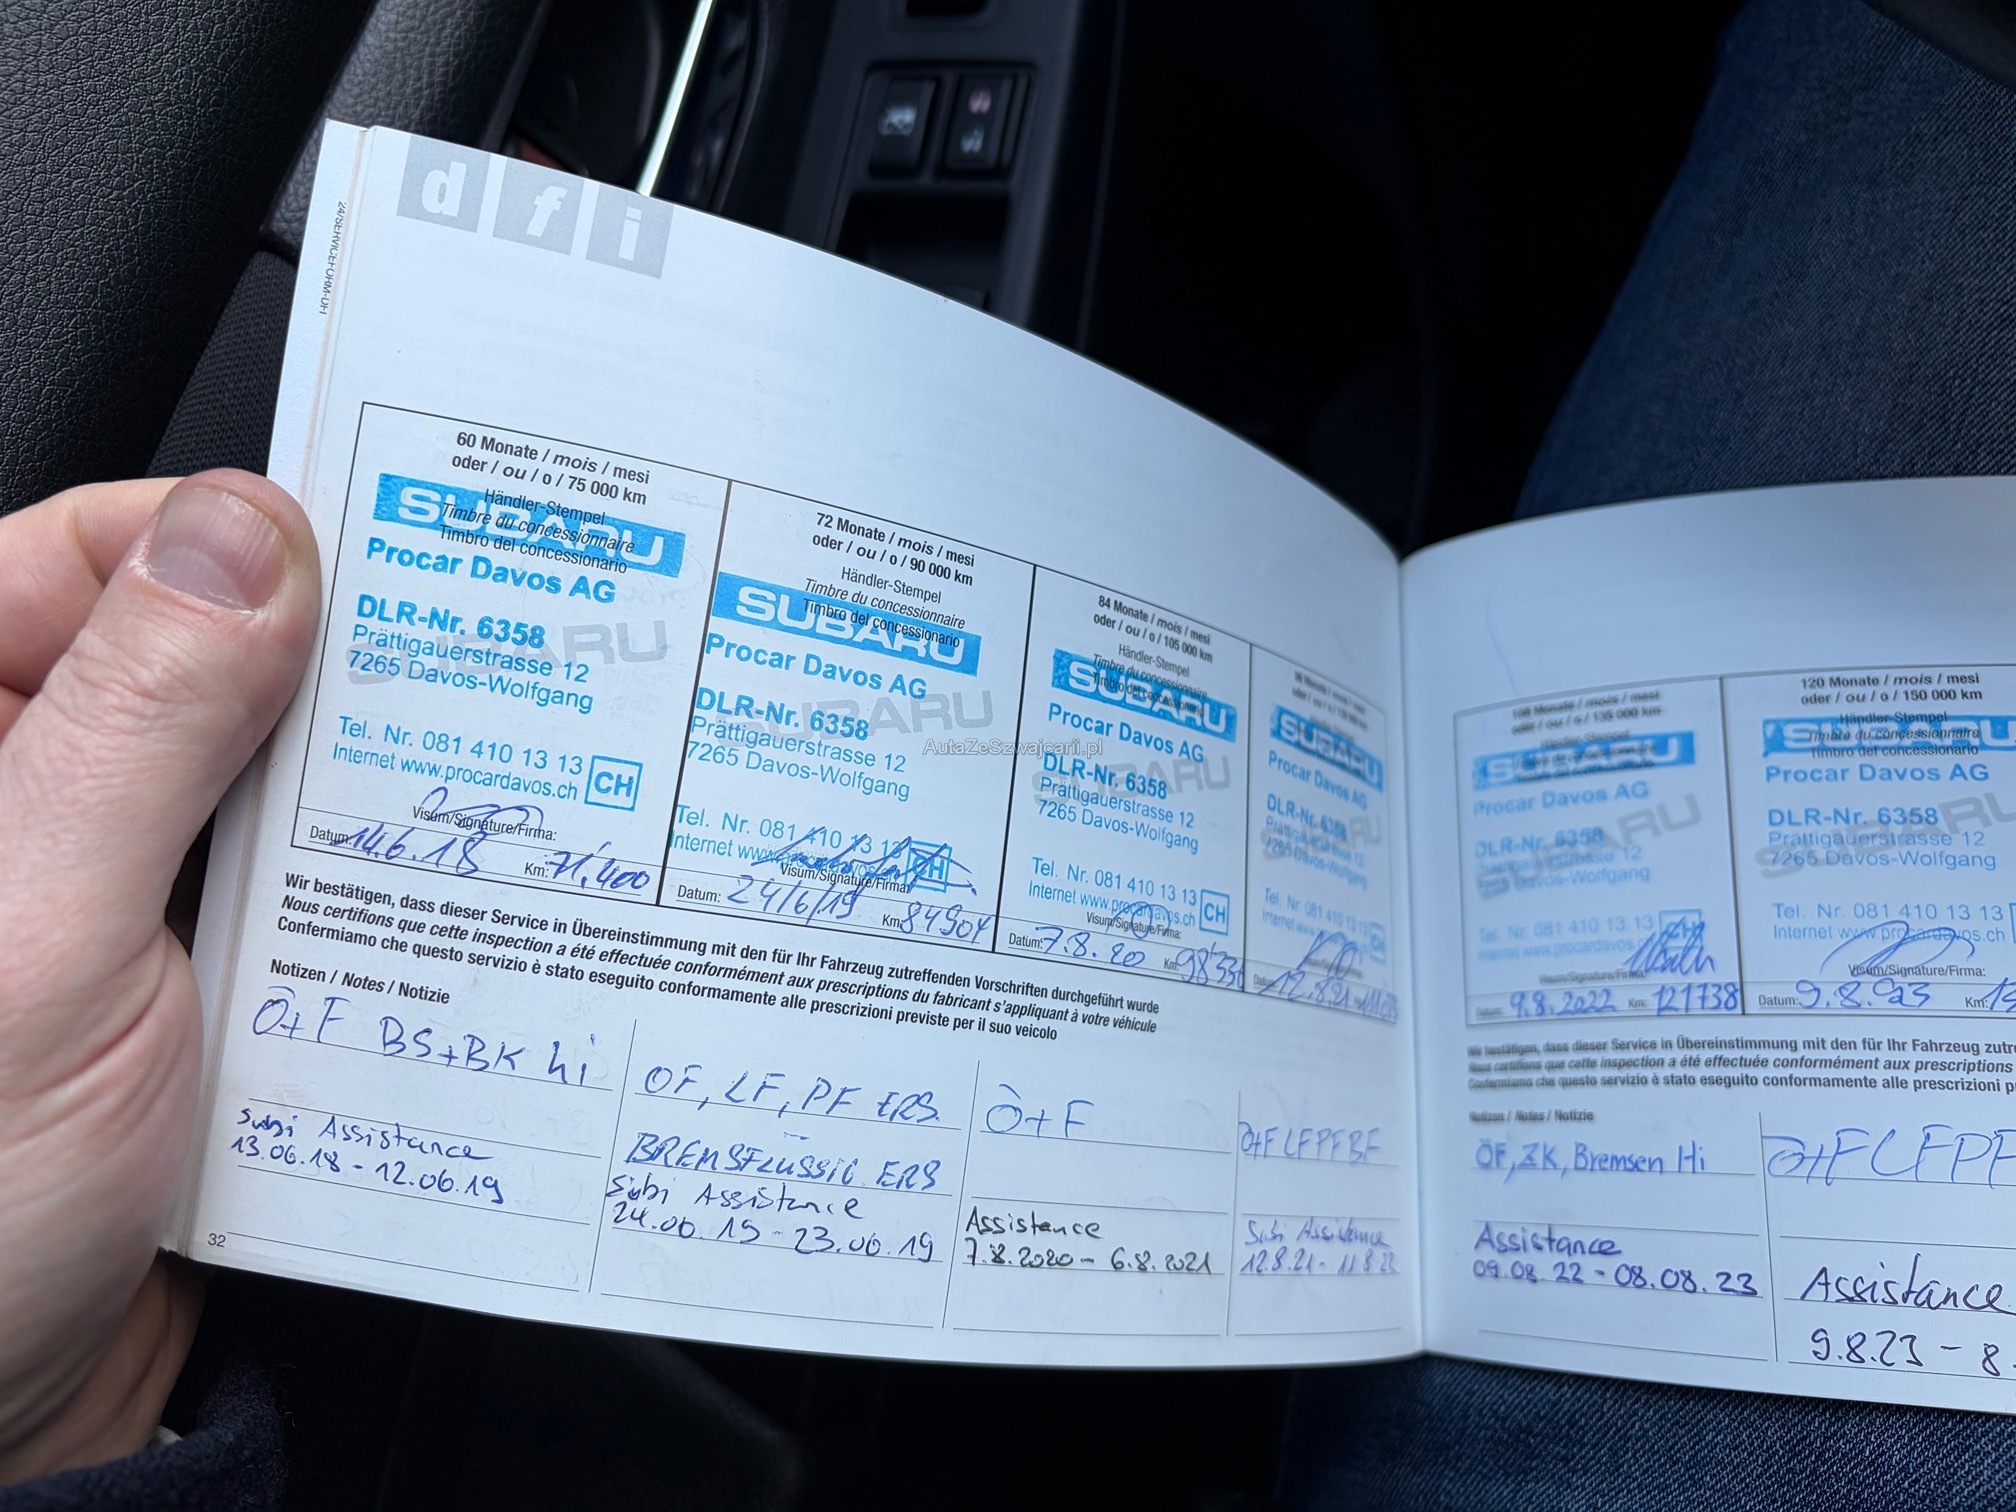 d f i
24/SERVICEFORM-DFI
60 Monate / mois / mesi
oder / ou / o / 75 000 km
Händler-Stempel
Timbre du concessionnaire
Timbro del concessionario
SUBARU
Procar Davos AG
DLR-Nr. 6358
SUBARU
Prättigauerstrasse 12
7265 Davos-Wolfgang
Tel. Nr. 081 410 13 13
Internet www.procardavos.ch
CH
Visum/Signature/Firma:
Datum: 14.6.18 Km: 71'400
72 Monate / mois / mesi
oder / ou / o / 90 000 km
Händler-Stempel
Timbre du concessionnaire
Timbro del concessionario
SUBARU
Procar Davos AG
DLR-Nr. 6358
SUBARU
Prättigauerstrasse 12
7265 Davos-Wolfgang
Tel. Nr. 081 410 13 13
Internet www.procardavos.ch
CH
Visum/Signature/Firma:
Datum: 24/6/19 Km: 84904
84 Monate / mois / mesi
oder / ou / o / 105 000 km
Händler-Stempel
Timbre du concessionnaire
Timbro del concessionario
SUBARU
Procar Davos AG
DLR-Nr. 6358
SUBARU
Prättigauerstrasse 12
7265 Davos-Wolfgang
Tel. Nr. 081 410 13 13
Internet www.procardavos.ch
CH
Visum/Signature/Firma:
Datum: 7.8.20 Km:
SUBARU
Procar Davos AG
DLR-Nr. 6358
Prättigauerstrasse 12
7265 Davos-Wolfgang
12.8.21
Wir bestätigen, dass dieser Service in Übereinstimmung mit den für Ihr Fahrzeug zutreffenden Vorschriften durchgeführt wurde
Nous certifions que cette inspection a été effectuée conformément aux prescriptions du fabricant s'appliquant à votre véhicule
Confermiamo che questo servizio è stato eseguito conformamente alle prescrizioni previste per il suo veicolo
Notizen / Notes / Notizie
Ö+F BS+BK hi
Subi Assistance
13.06.18 - 12.06.19
OF, LF, PF ERS.
BREMSFLÜSSIG. ERS
Subi Assistance
24.06.19 - 23.06.19
Ö+F
Assistance
7.8.2020 - 6.8.2021
Ö+F LF PF BF
Subi Assistance
12.8.21 - 11.8.22
32
AutaZeSzwajcarii.pl
108 Monate / mois / mesi
oder / ou / o / 135 000 km
SUBARU
Procar Davos AG
DLR-Nr. 6358
SUBARU
Prättigauerstrasse 12
7265 Davos-Wolfgang
Tel. Nr. 081 410 13 13
Internet www.procardavos.ch
CH
Visum/Signature/Firma:
Datum: 9.8.2022 Km: 121738
120 Monate / mois / mesi
oder / ou / o / 150 000 km
Händler-Stempel
Timbre du concessionnaire
Timbro del concessionario
SUBARU
Procar Davos AG
DLR-Nr. 6358
Prättigauerstrasse 12
7265 Davos-Wolfgang
Tel. Nr. 081 410 13 13
Internet www.procardavos.ch
Visum/Signature/Firma:
Datum: 9.8.23 Km: 13
Wir bestätigen, dass dieser Service in Übereinstimmung mit den für Ihr Fahrzeug zutre
Nous certifions que cette inspection a été effectuée conformément aux prescriptions
Confermiamo che questo servizio è stato eseguito conformamente alle prescrizioni p
Notizen / Notes / Notizie
ÖF, ZK, Bremsen Hi
Assistance
09.08.22 - 08.08.23
Ö+F LF PF
Assistance
9.8.23 - 8.